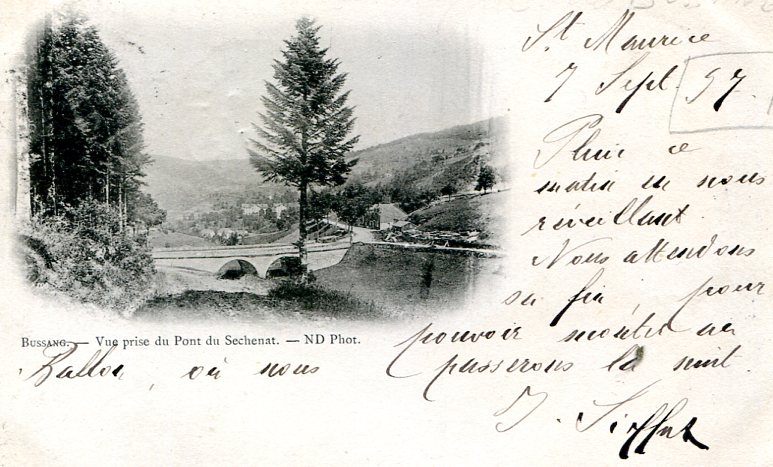 St Maurice
7 Sept. 97.
Pluie ce
matin en nous
réveillant.
Nous attendons
sa fin, pour
pouvoir monter au
Ballon, où nous passerons la nuit.
BUSSANG. — Vue prise du Pont du Sechenat. — ND Phot.